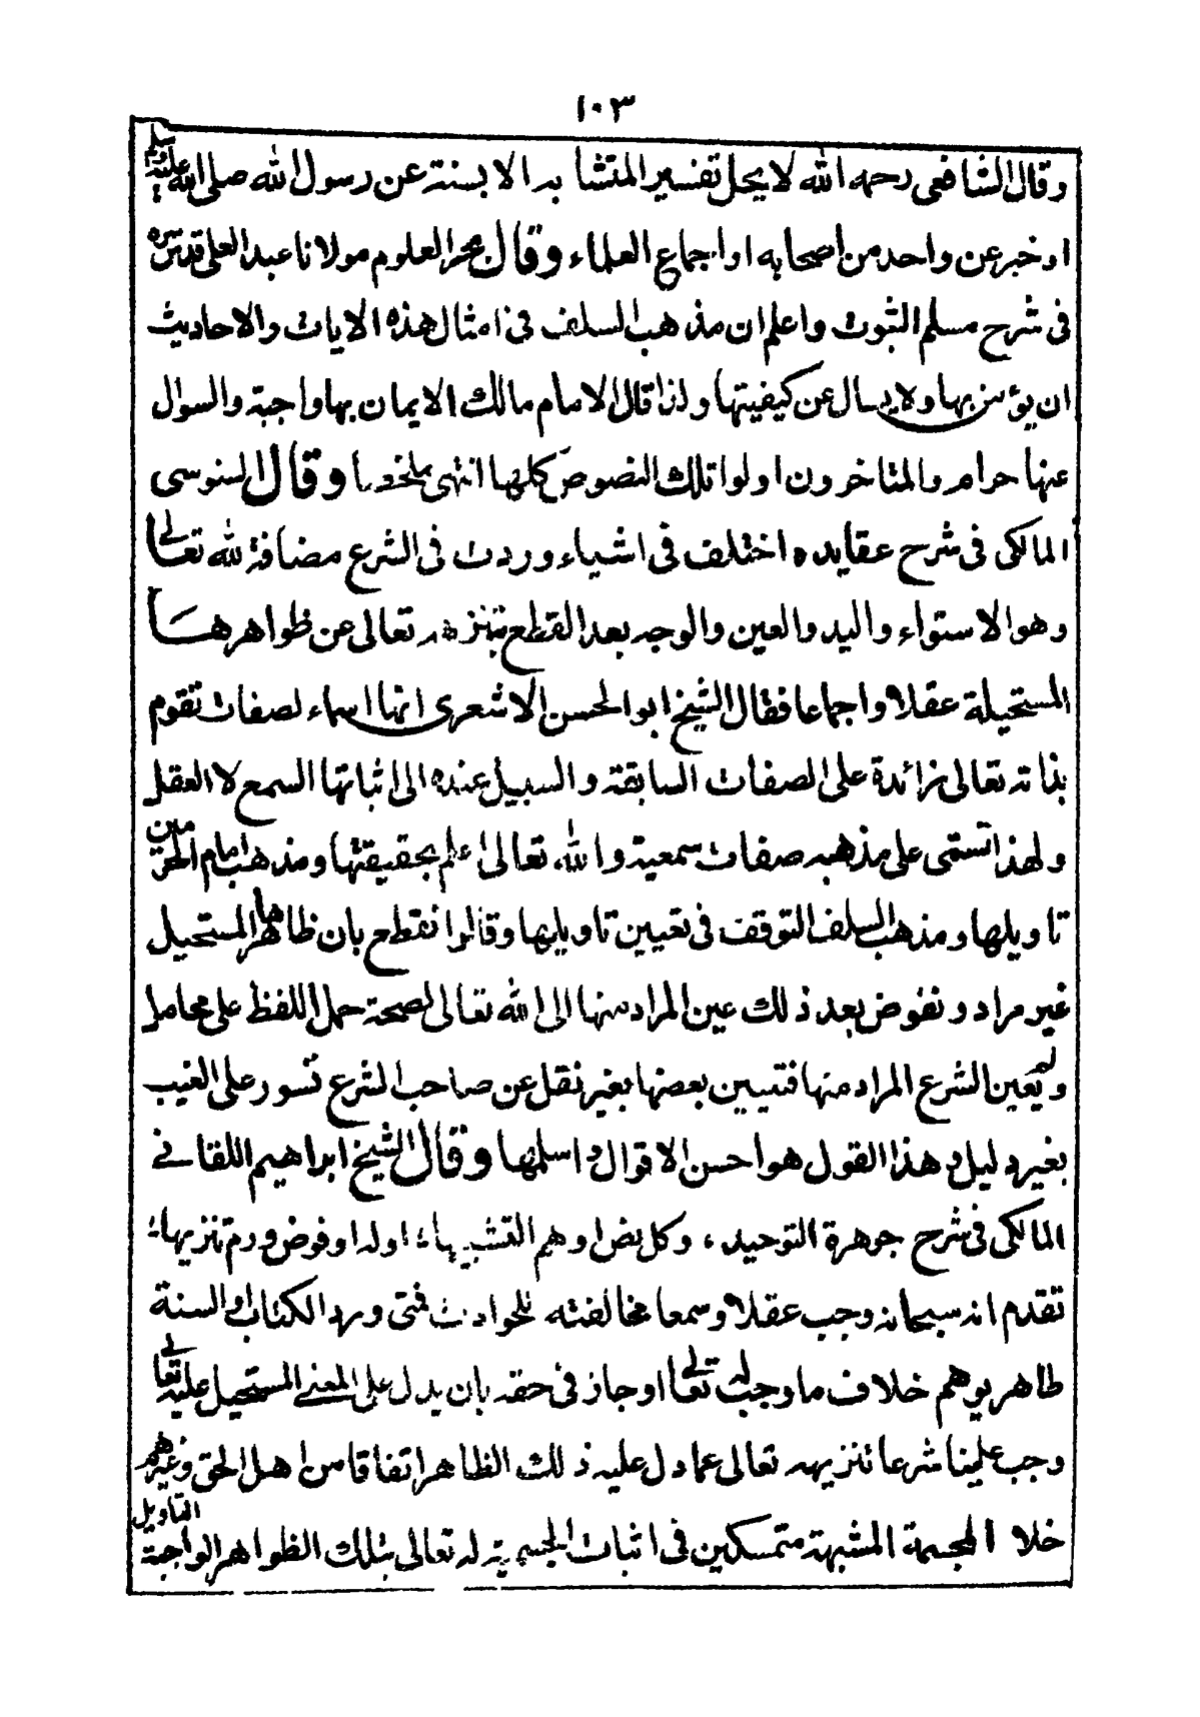 ١٠٣
وقال الشافعى رحمه الله لا يحل تفسير المتشابه الا بسنة عن رسول الله صلى الله عليه وسلم
او خبر عن واحد من اصحابه او اجماع العلماء وقال بحر العلوم مولانا عبد العلى قدس سره
فى شرح مسلم الثبوت واعلم ان مذهب السلف فى امثال هذه الايات والاحاديث
ان يؤمن بها ولا يسال عن كيفيتها ولذا قال الامام مالك الايمان بها واجبة والسوال
عنها حرام والمتاخرون اولوا تلك النصوص كلها انتهى ملخصا وقال السنوسى
المالكى فى شرح عقايده اختلف فى اشياء وردت فى الشرع مضافة لله تعالى
وهو الاستواء واليد والعين والوجه بعد القطع بتنزهه تعالى عن ظواهرها
المستحيلة عقلا واجماعا فقال الشيخ ابو الحسن الاشعرى انها اسماء لصفات تقوم
بذاته تعالى زائدة على الصفات السابقة والسبيل عنده الى اثباتها السمع لا العقل
ولهذا تسمى على مذهبه صفات سمعية والله تعالى اعلم بحقيقتها ومذهب امام الحرمين
تاويلها ومذهب السلف التوقف فى تعيين تاويلها وقالوا نقطع بان ظاهرها المستحيل
غير مراد ونفوض بعد ذلك عين المراد منها الى الله تعالى لصحة حمل اللفظ على محامل
ولم يعين الشرع المراد منها فتبيين بعضها بغير نقل عن صاحب الشرع تسور على الغيب
بغير دليل وهذا القول هو احسن الاقوال واسلمها وقال الشيخ ابراهيم اللقانے
المالكى فى شرح جوهرة التوحيد، وكل نص اوهم التشبيها؛ اوله او فوض ورم تنزيها؛
تقدم انه سبحانه وجب عقلا وسمعا مخالفته للحوادث فمتى ورد الكتاب او السنة
ظاهر يوهم خلاف ما وجب له تعالى او جاز فى حقه بان يدل على المعنے المستحيل عليه تعالى
وجب علينا شرعا تنزيهه تعالى عما دل عليه ذلك الظاهر اتفاقا من اهل الحق وغيرهم
خلا المجسمة المشبهة متمسكين فى اثبات الجسمية له تعالى بتلك الظواهر الواجبة التاويل